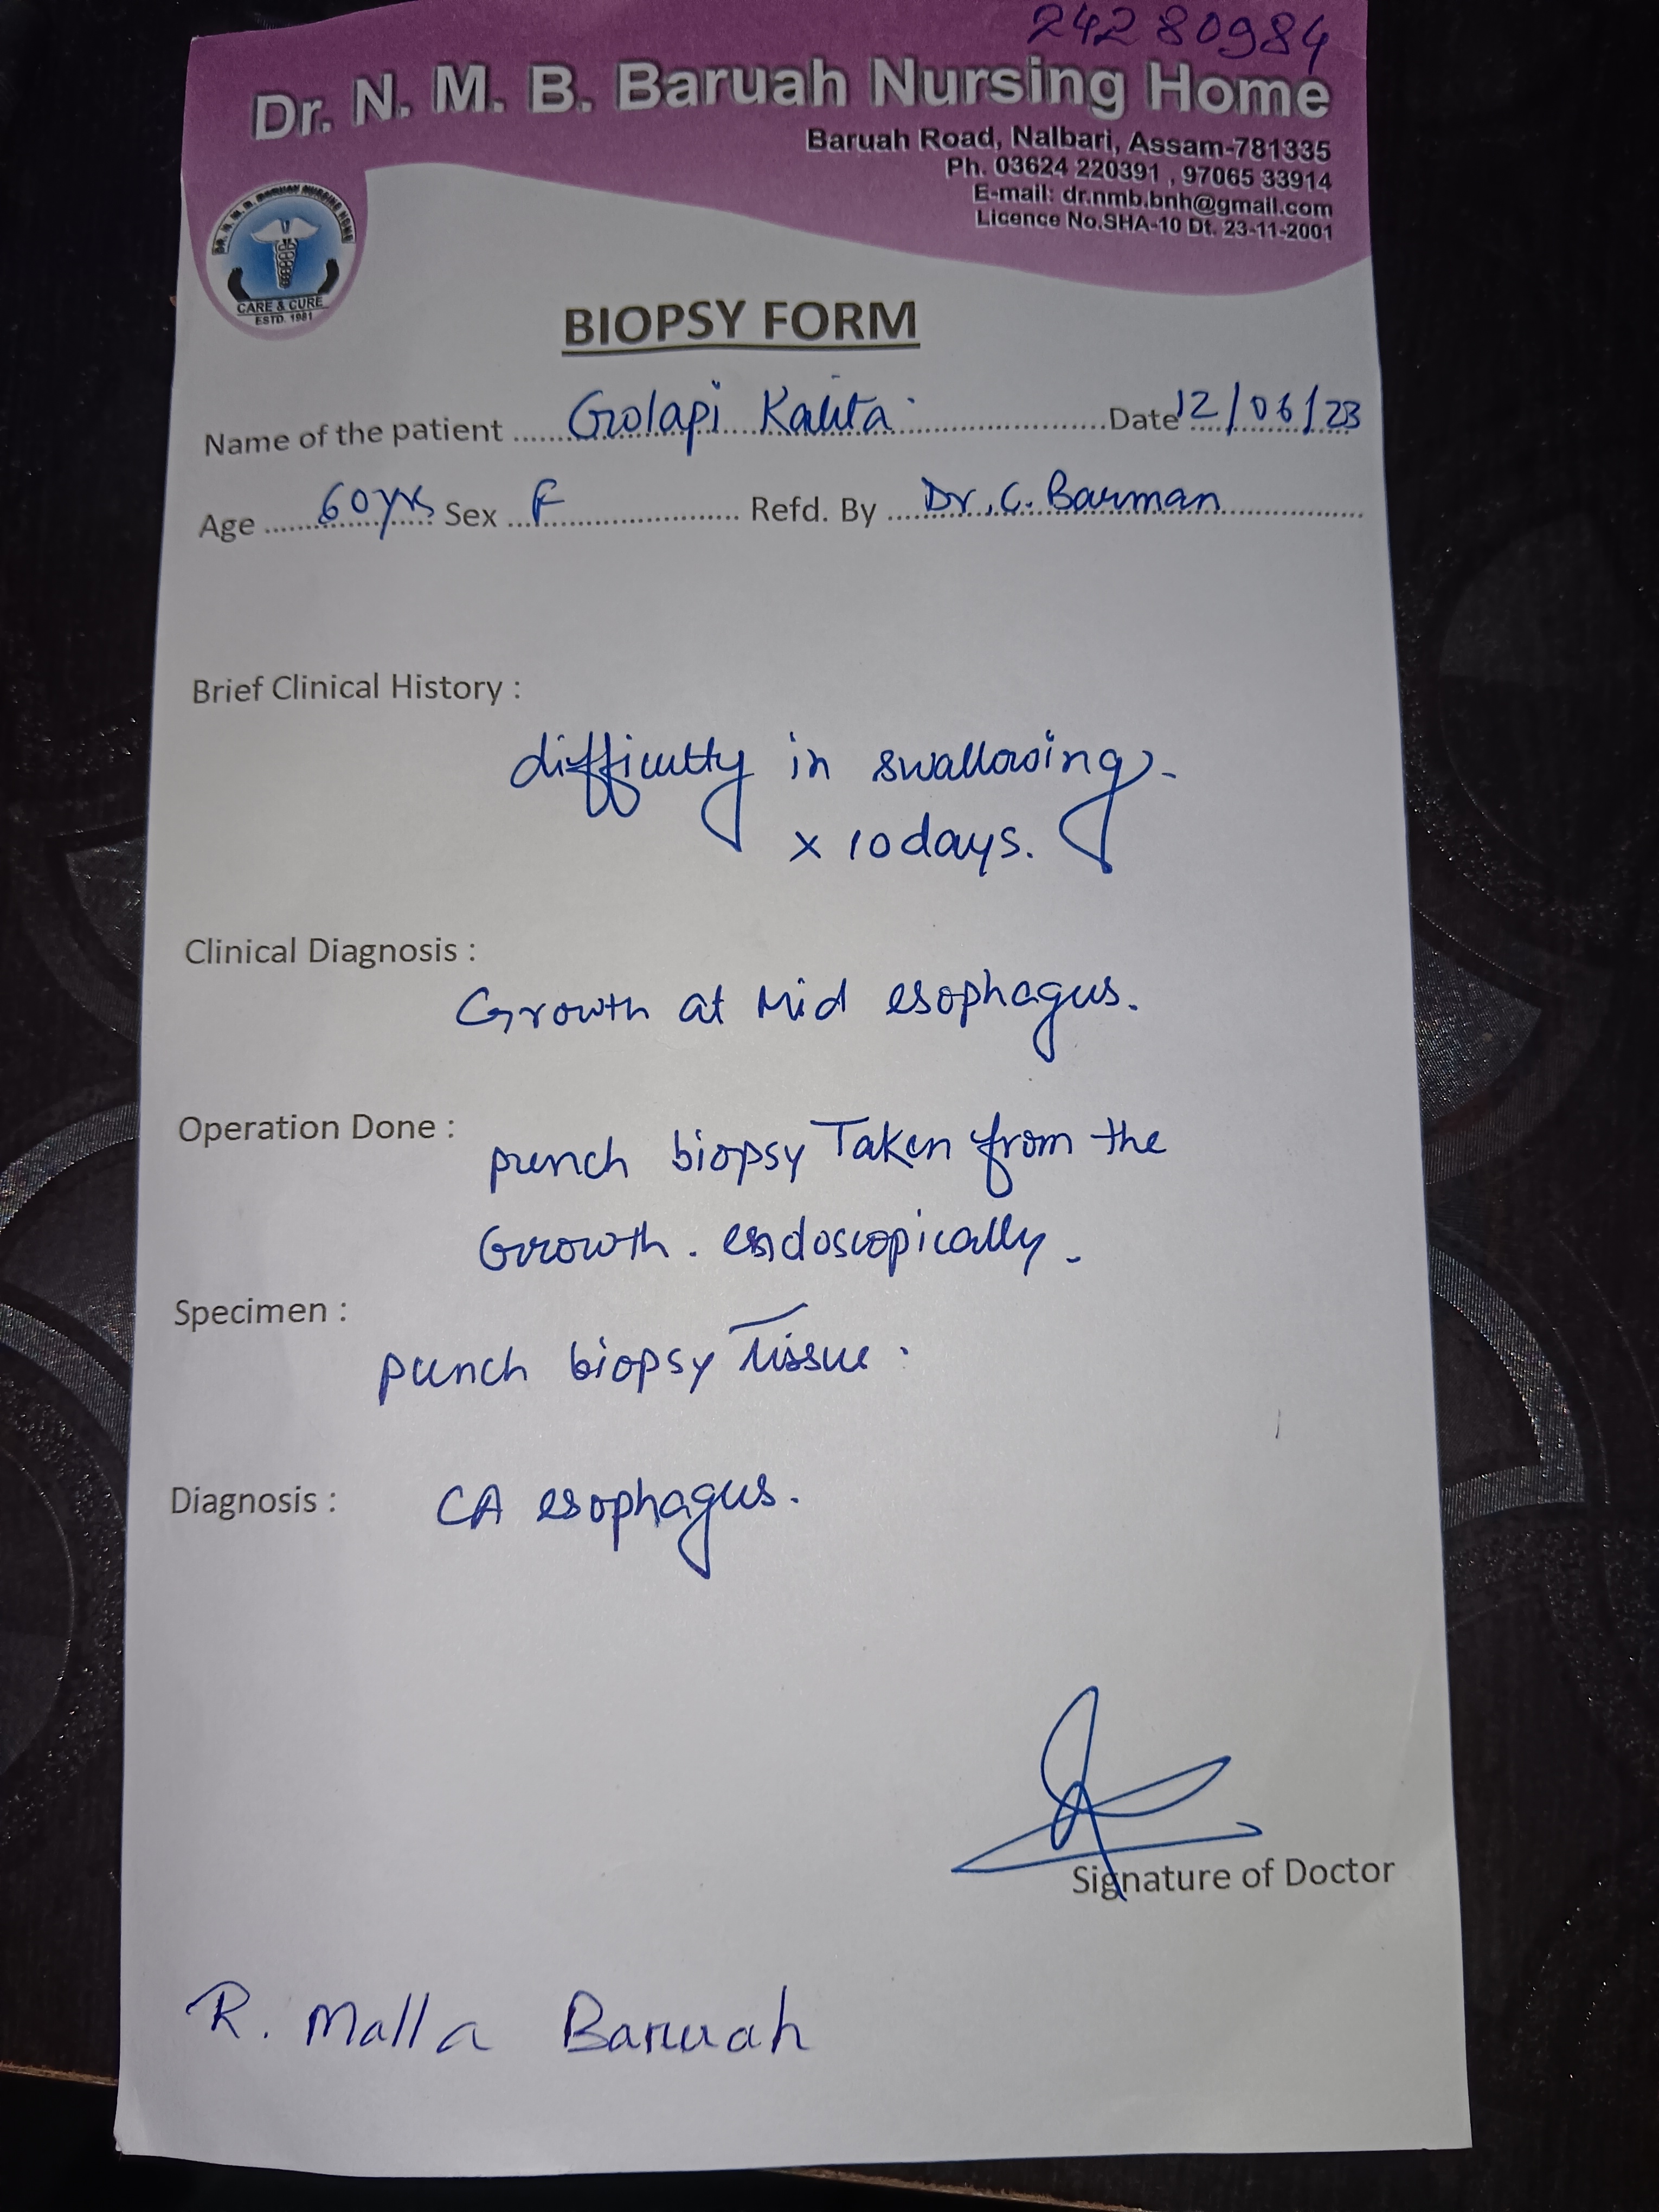 24280984
Dr. N. M. B. Baruah Nursing Home
Baruah Road, Nalbari, Assam-781335
Ph. 03624 220391 , 97065 33914
E-mail: dr.nmb.bnh@gmail.com
Licence No.SHA-10 Dt. 23-11-2001
DR. N. M. B. BARUAH NURSING HOME
CARE & CURE
ESTD. 1981
BIOPSY FORM
Name of the patient ...... Golapi Kalita ...... Date 12/06/23
Age ...... 60yrs Sex ... F ...... Refd. By ...... Dr. C. Barman ......
Brief Clinical History :
difficulty in swallowing.
x 10 days.
Clinical Diagnosis :
Growth at Mid esophagus.
Operation Done :
punch biopsy Taken from the
Growth. endoscopically.
Specimen :
punch biopsy Tissue.
Diagnosis : CA esophagus.
Signature of Doctor
R. Malla Baruah